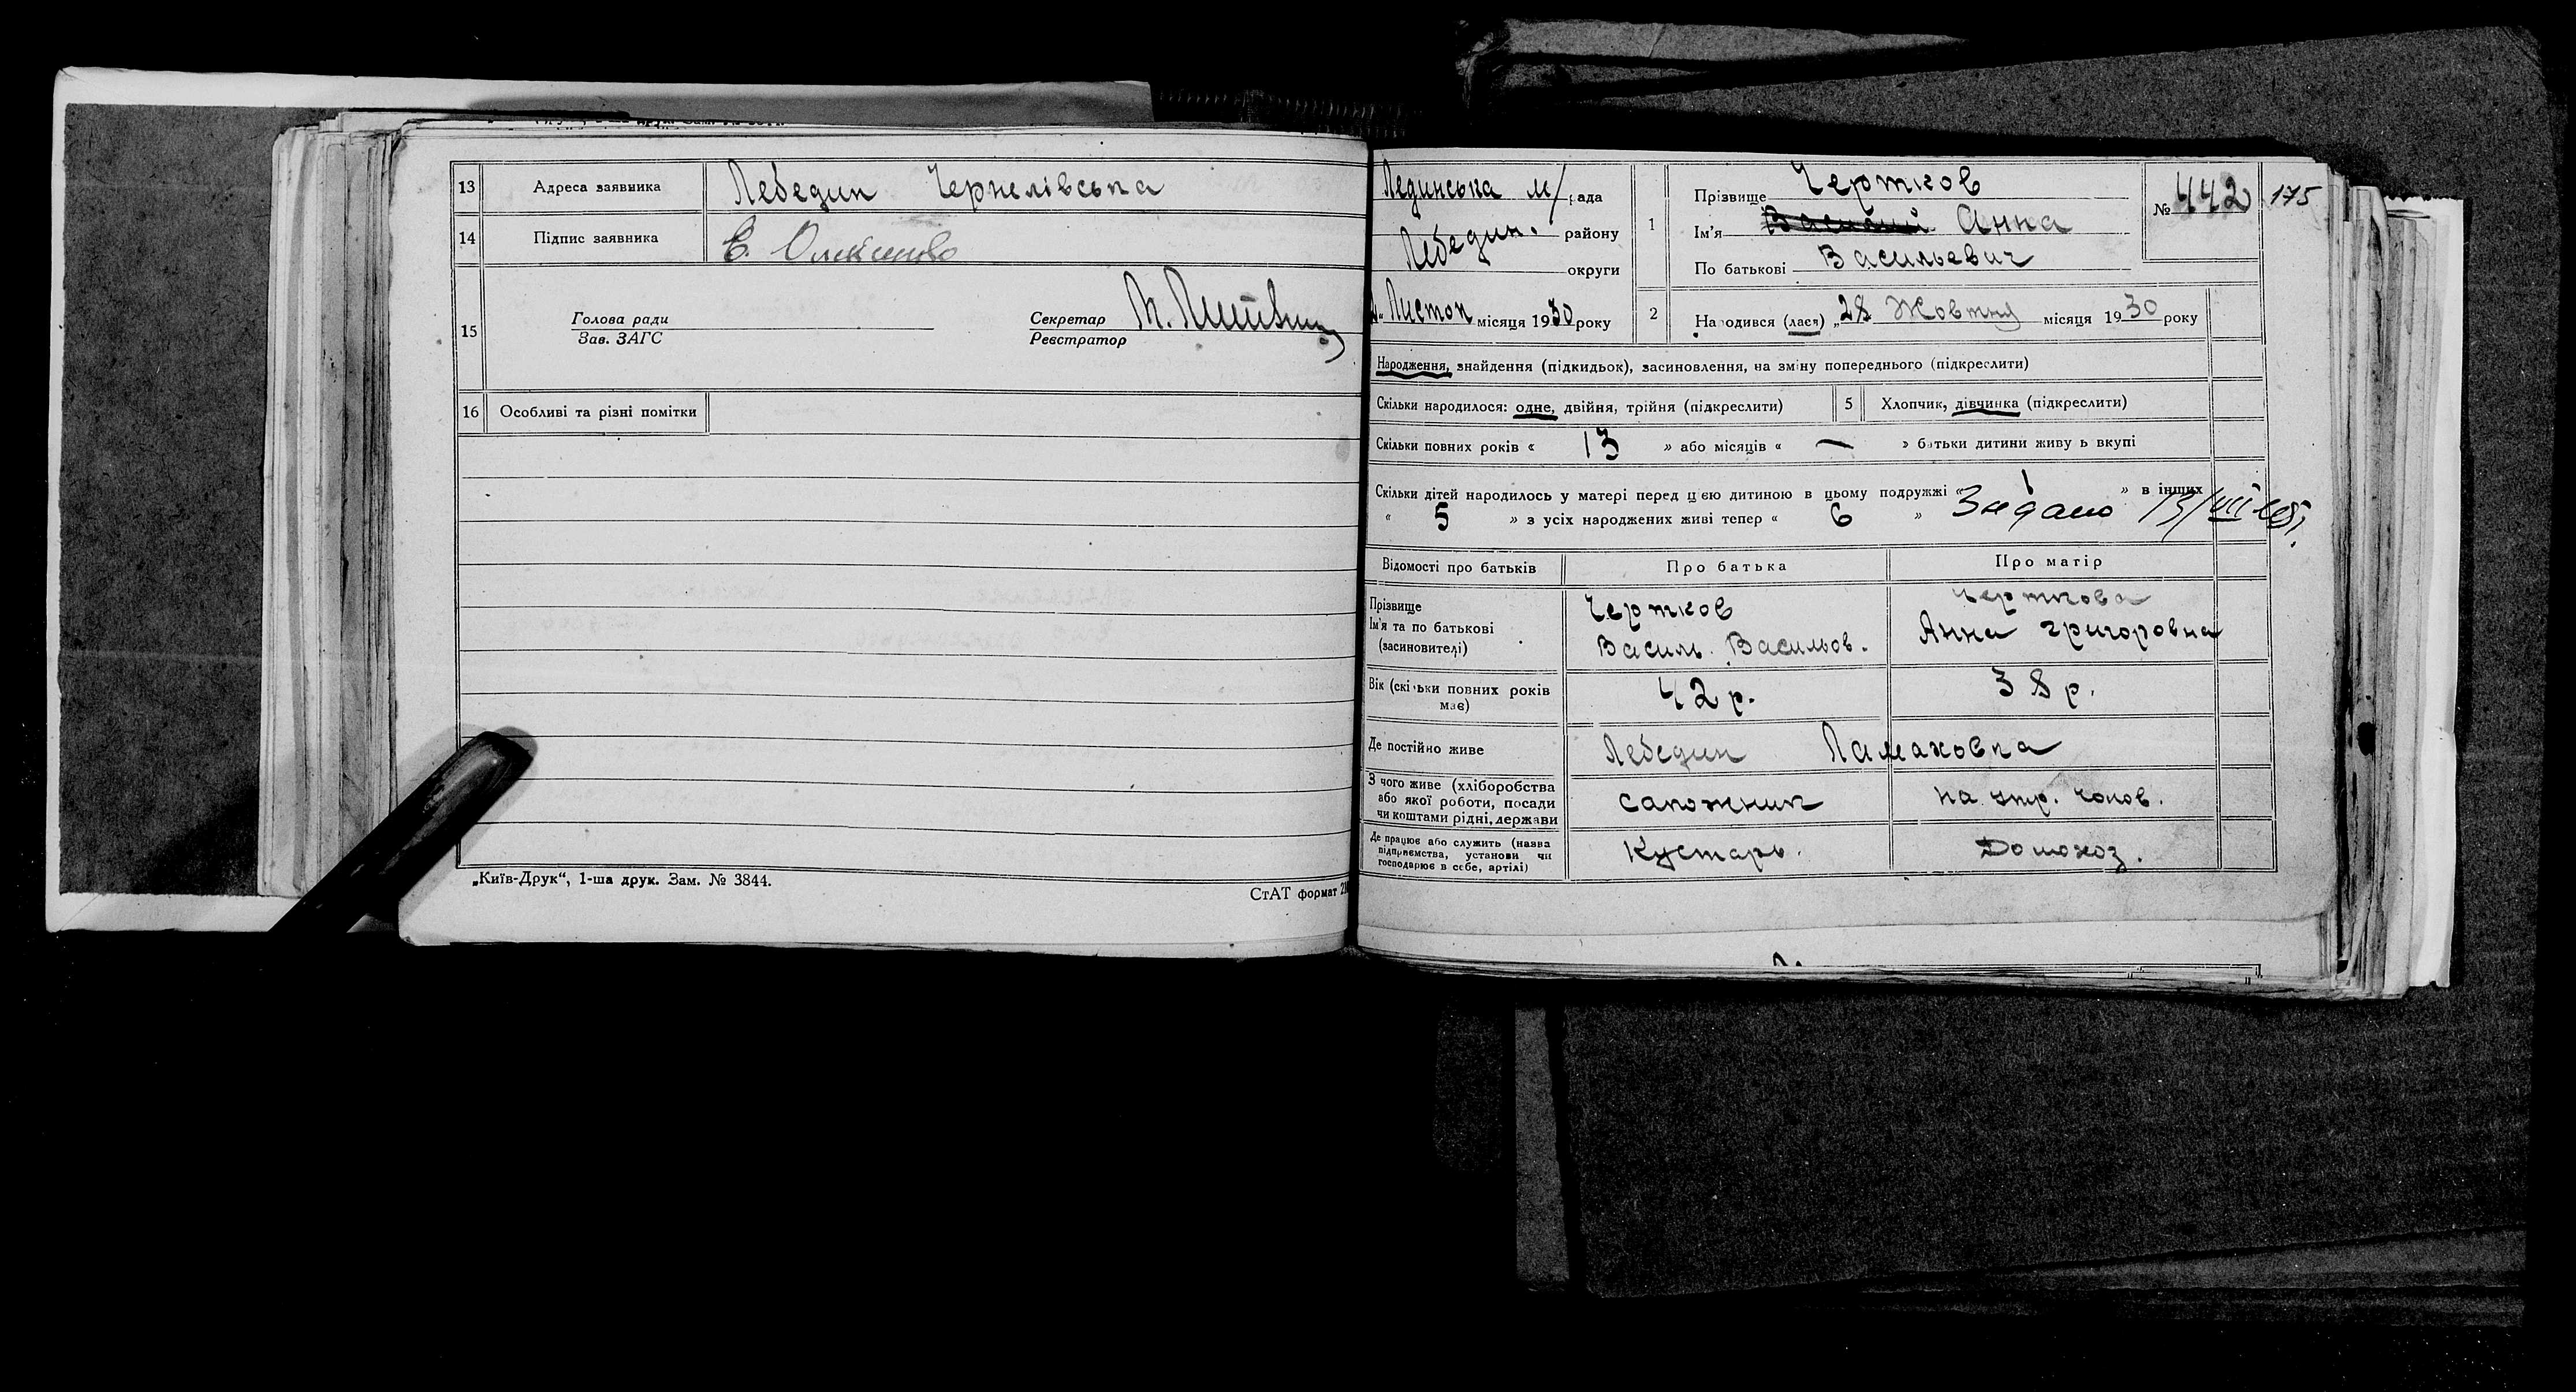 13 Адреса заявника Лебедин Чернелівська
14 Підпис заявника Є.
15 Голова ради Секретар
Зав. ЗАГС Реєстратор
16 Особливі та різні помітки
„Київ-Друк“, 1-ша друк. Зам. № 3844.
СтАТ формат
Лединська м/рада
Лебедин. району
округи
Листоп місяця 1930 року
1 Прізвище Чертков
Ім'я Анна
По батькові Васильевич
№ 442 175
2 Народився (лася) „28 Жовтня місяця 1930 року
Народження, знайдення (підкидьок), засиновлення, на зміну попереднього (підкреслити)
Скільки народилося: одне, двійня, трійня (підкреслити) 5 Хлопчик, дівчинка (підкреслити)
Скільки повних років « 13 » або місяців « — » батьки дитини живу ь вкупі
Скільки дітей народилось у матері перед цією дитиною в цьому подружжі « 1 » в інших
« 5 » з усіх народжених живі тепер « 6 »
Відомості про батьків Про батька Про матір
Прізвище Чертков Черткова
Ім'я та по батькові
(засиновителі) Василь Васильов. Анна Григоровна
Вік (скільки повних років має) 42 р. 38 р.
Де постійно живе Лебедин Ламаховка
З чого живе (хліборобства
або якої роботи, посади
чи коштами рідні, держави сапожник на утр. чолов.
Де працює або служить (назва
підприємства, установи чи
господарює в себе, артілі) Кустарь. Домохоз.